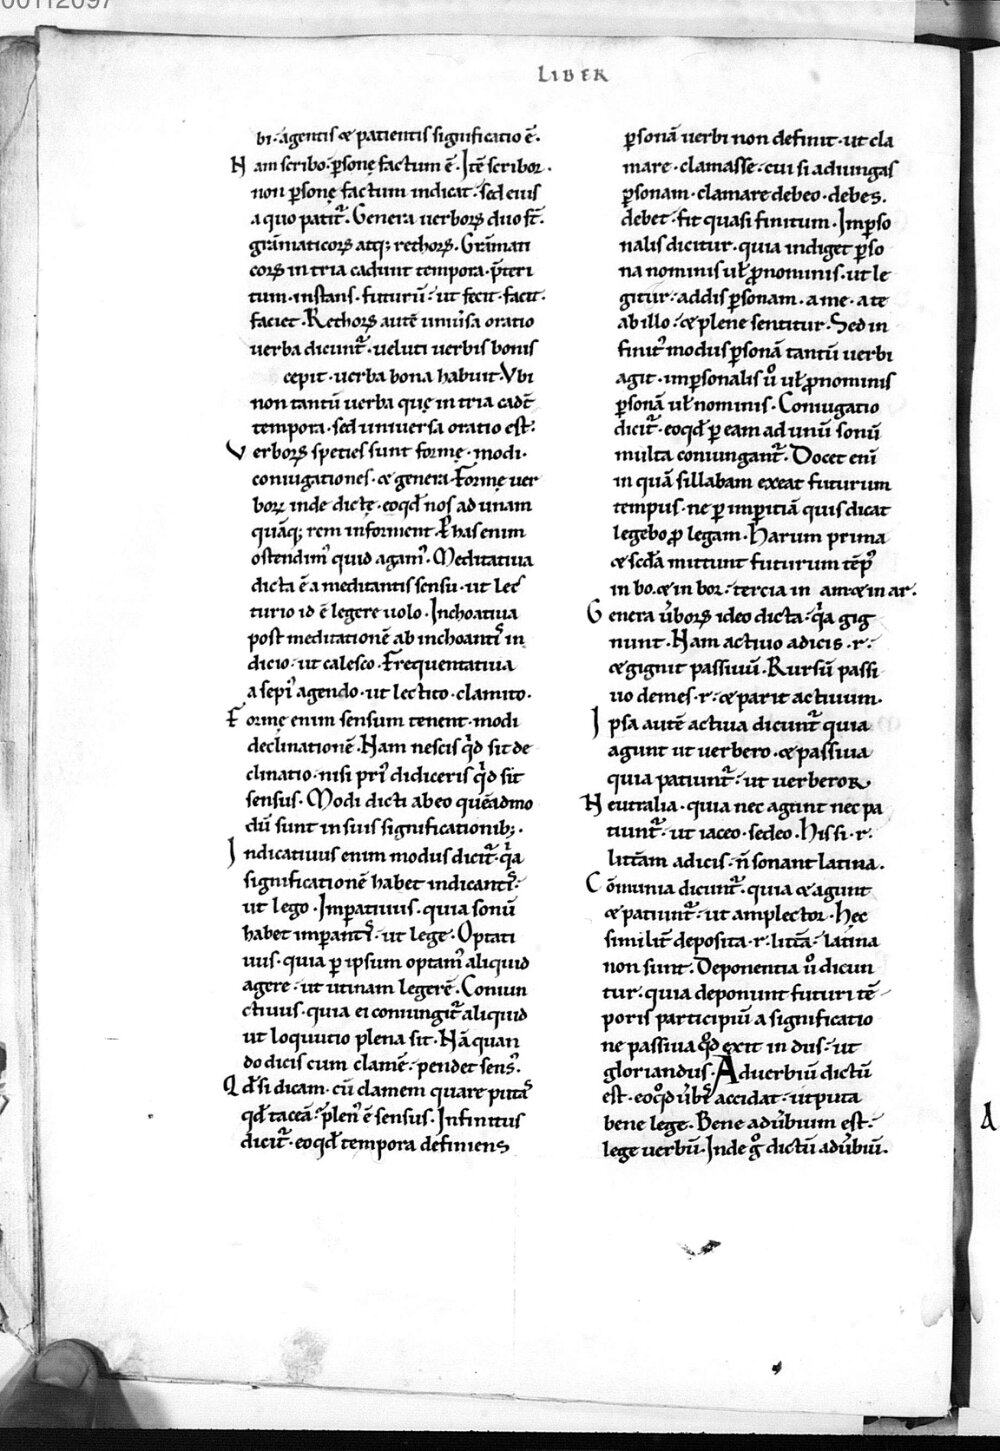 00112097
LIBER
bi· agentis & patientis significatio ē.
Nam scribo· ꝑsonę factum ē· Itē scribor·
non ꝑsonę factum indicat· sed eius
a quo patit᷑· Genera uerboꝝ duo st̄·
grāmaticoꝝ atq; rethoꝝ· Grāmati
coꝝ in tria cadunt tempora· p̄teri
tum· instans· futurū· ut fecit· facit·
faciet· Rethoꝝ autē uniu̓sa oratio
uerba dicunt᷑· ueluti uerbis bonis
cepit· uerba bona habuit· Vbi
non tantū uerba quę in tria cadt̄
tempora· sed uniuersa oratio est·
Verboꝝ species sunt formę· modi·
coniugationes· & genera· Formę uer
boꝝ inde dictę· eoqd̄ nos ad unam
quāq; rem informent· P has enim
ostendim᷒ quid agam᷒· Meditatiua
dicta ē a meditantis sensu· ut lec
turio id ē legere uolo· Inchoatiua
post meditationē ab inchoantis in
dicio· ut calesco· Frequentatiua
a sepi᷒ agendo· ut lectito· clamito·
Formę enim sensum tenent· modi
declinationē· Nam nescis qͥd sit de
clinatio· nisi pri᷒ didiceris qͥd sit
sensus· Modi dicti ab eo quēadmo
dū sunt in suis significationib;·
Indicatiuus enim modus dicit᷑· qͥa
significationē habet indicantis·
ut lego· Imꝑatiuus· quia sonū
habet imꝑantis· ut lege· Optati
uus· quia ꝑ ipsum optam᷒ aliquid
agere· ut utinam legerē· Coniun
ctiuus· quia ei coniungit᷑ aliquid
ut loquutio plena sit· Nā quan
do dicis cum clamē· pendet sens᷒·
Qd̄ si dicam· cū clamem quare putas
qd̄ taceā· plen᷒ ē sensus· Infinitus
dicit᷑· eoqd̄ tempora definiens
ꝑsonā uerbi non definit· ut cla
mare· clamasse· cui si adiungas
ꝑsonam· clamare debeo· debes·
debet· fit quasi finitum· Imꝑso
nalis dicitur· quia indiget ꝑso
na nominis ul̄ ꝓnominis· ut le
gitur· addis ꝑsonam· a me· a te
ab illo· & plene sentitur· Sed in
finit᷒ modus ꝑsonā tantū uerbi
agit· imꝑsonalis ů ul̄ ꝓnominis
ꝑsonā ul̄ nominis· Coniugatio
dicit᷑· eoqd̄ ꝑ eam ad unū sonū
multa coniungant᷑· Docet enī
in quā sillabam exeat futurum
tempus· ne ꝑ imꝑitiā quis dicat
legebo ꝓ legam· Harum prima
& scd̄a mittunt futurum tēp᷒
in bo· & in bor· tercia in am· & in ar·
Genera u̓boꝝ ideo dicta· qͥa gig
nunt· Nam actiuo adicis ·r·
& gignit passiuū· Rursū passi
uo demes ·r· & parit actiuum·
Ipsa autē actiua dicunt᷑ quia
agunt ut uerbero· & passiua
quia patiunt᷑· ut uerberor
Neutralia· quia nec agunt nec pa
tiunt᷑· ut iaceo· sedeo· His si ·r·
litt̄am adicis· n̄ sonant latina·
Cōmunia dicunt᷑· quia & agunt
& patiunt᷑· ut amplector· Hec
similit̄ deposita ·r· litt̄a· latina
non sunt· Deponentia ů dicun
tur· quia deponunt futuri tē
poris participiū a significatio
ne passiua qd̄ exit in dus· ut
gloriandus· Aduerbiū dictū
est· eoqd̄ u̓bis accidat· ut puta
bene lege· Bene adu̓bium est·
lege uerbū· Inde g̊ dictū adu̓biū·
A